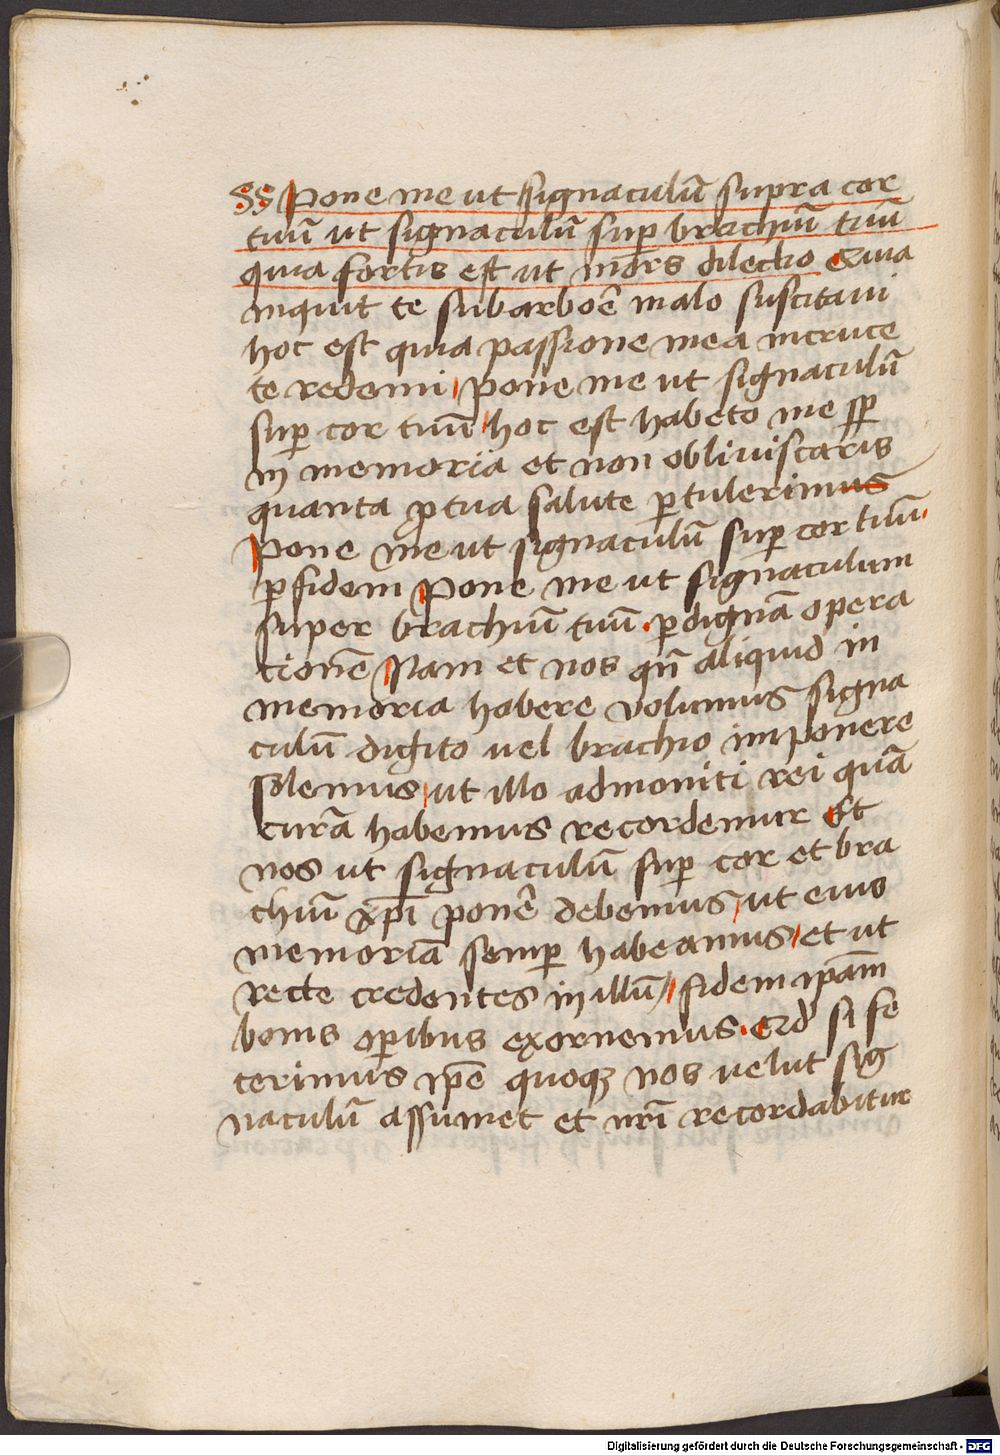 SS Pone me ut signaculū supra cor
tuū ut signaculū suꝑ brachiū tuū
quia fortis est ut mors dilectio Quia
inquit te sub arboē malo suscitavi
hoc est quia passione mea in cruce
te redemi pone me ut signaculū
suꝑ cor tuū hoc est habeto me sꝑ
in memoria et non obliuiscaris
quanta ꝓ tua salute ꝑtulerimus
Pone me ut signaculū suꝑ cor tuū.
ꝑ fidem Pone me ut signaculum
super brachiū tuū. ꝑ dignā opera
tionē Nam et nos qn̄ aliquid in
memoria habere volumus signa
culū digito uel brachio imponere
solemus ut illo admoniti rei quā
curā habemus recordemur Et
nos ut signaculū suꝑ cor et bra
chiū xp̄i ponē debemus ut eius
memoriā semꝑ habeamus et ut
recte credentes in illū / fidem ip̄am
bonis oꝑibus exornemus. Qd si fe
cerimus ip̄e quoqꝫ nos uelut sig
naculū assumet et nr̄i recordabitur
Digitalisierung gefördert durch die Deutsche Forschungsgemeinschaft - DFG